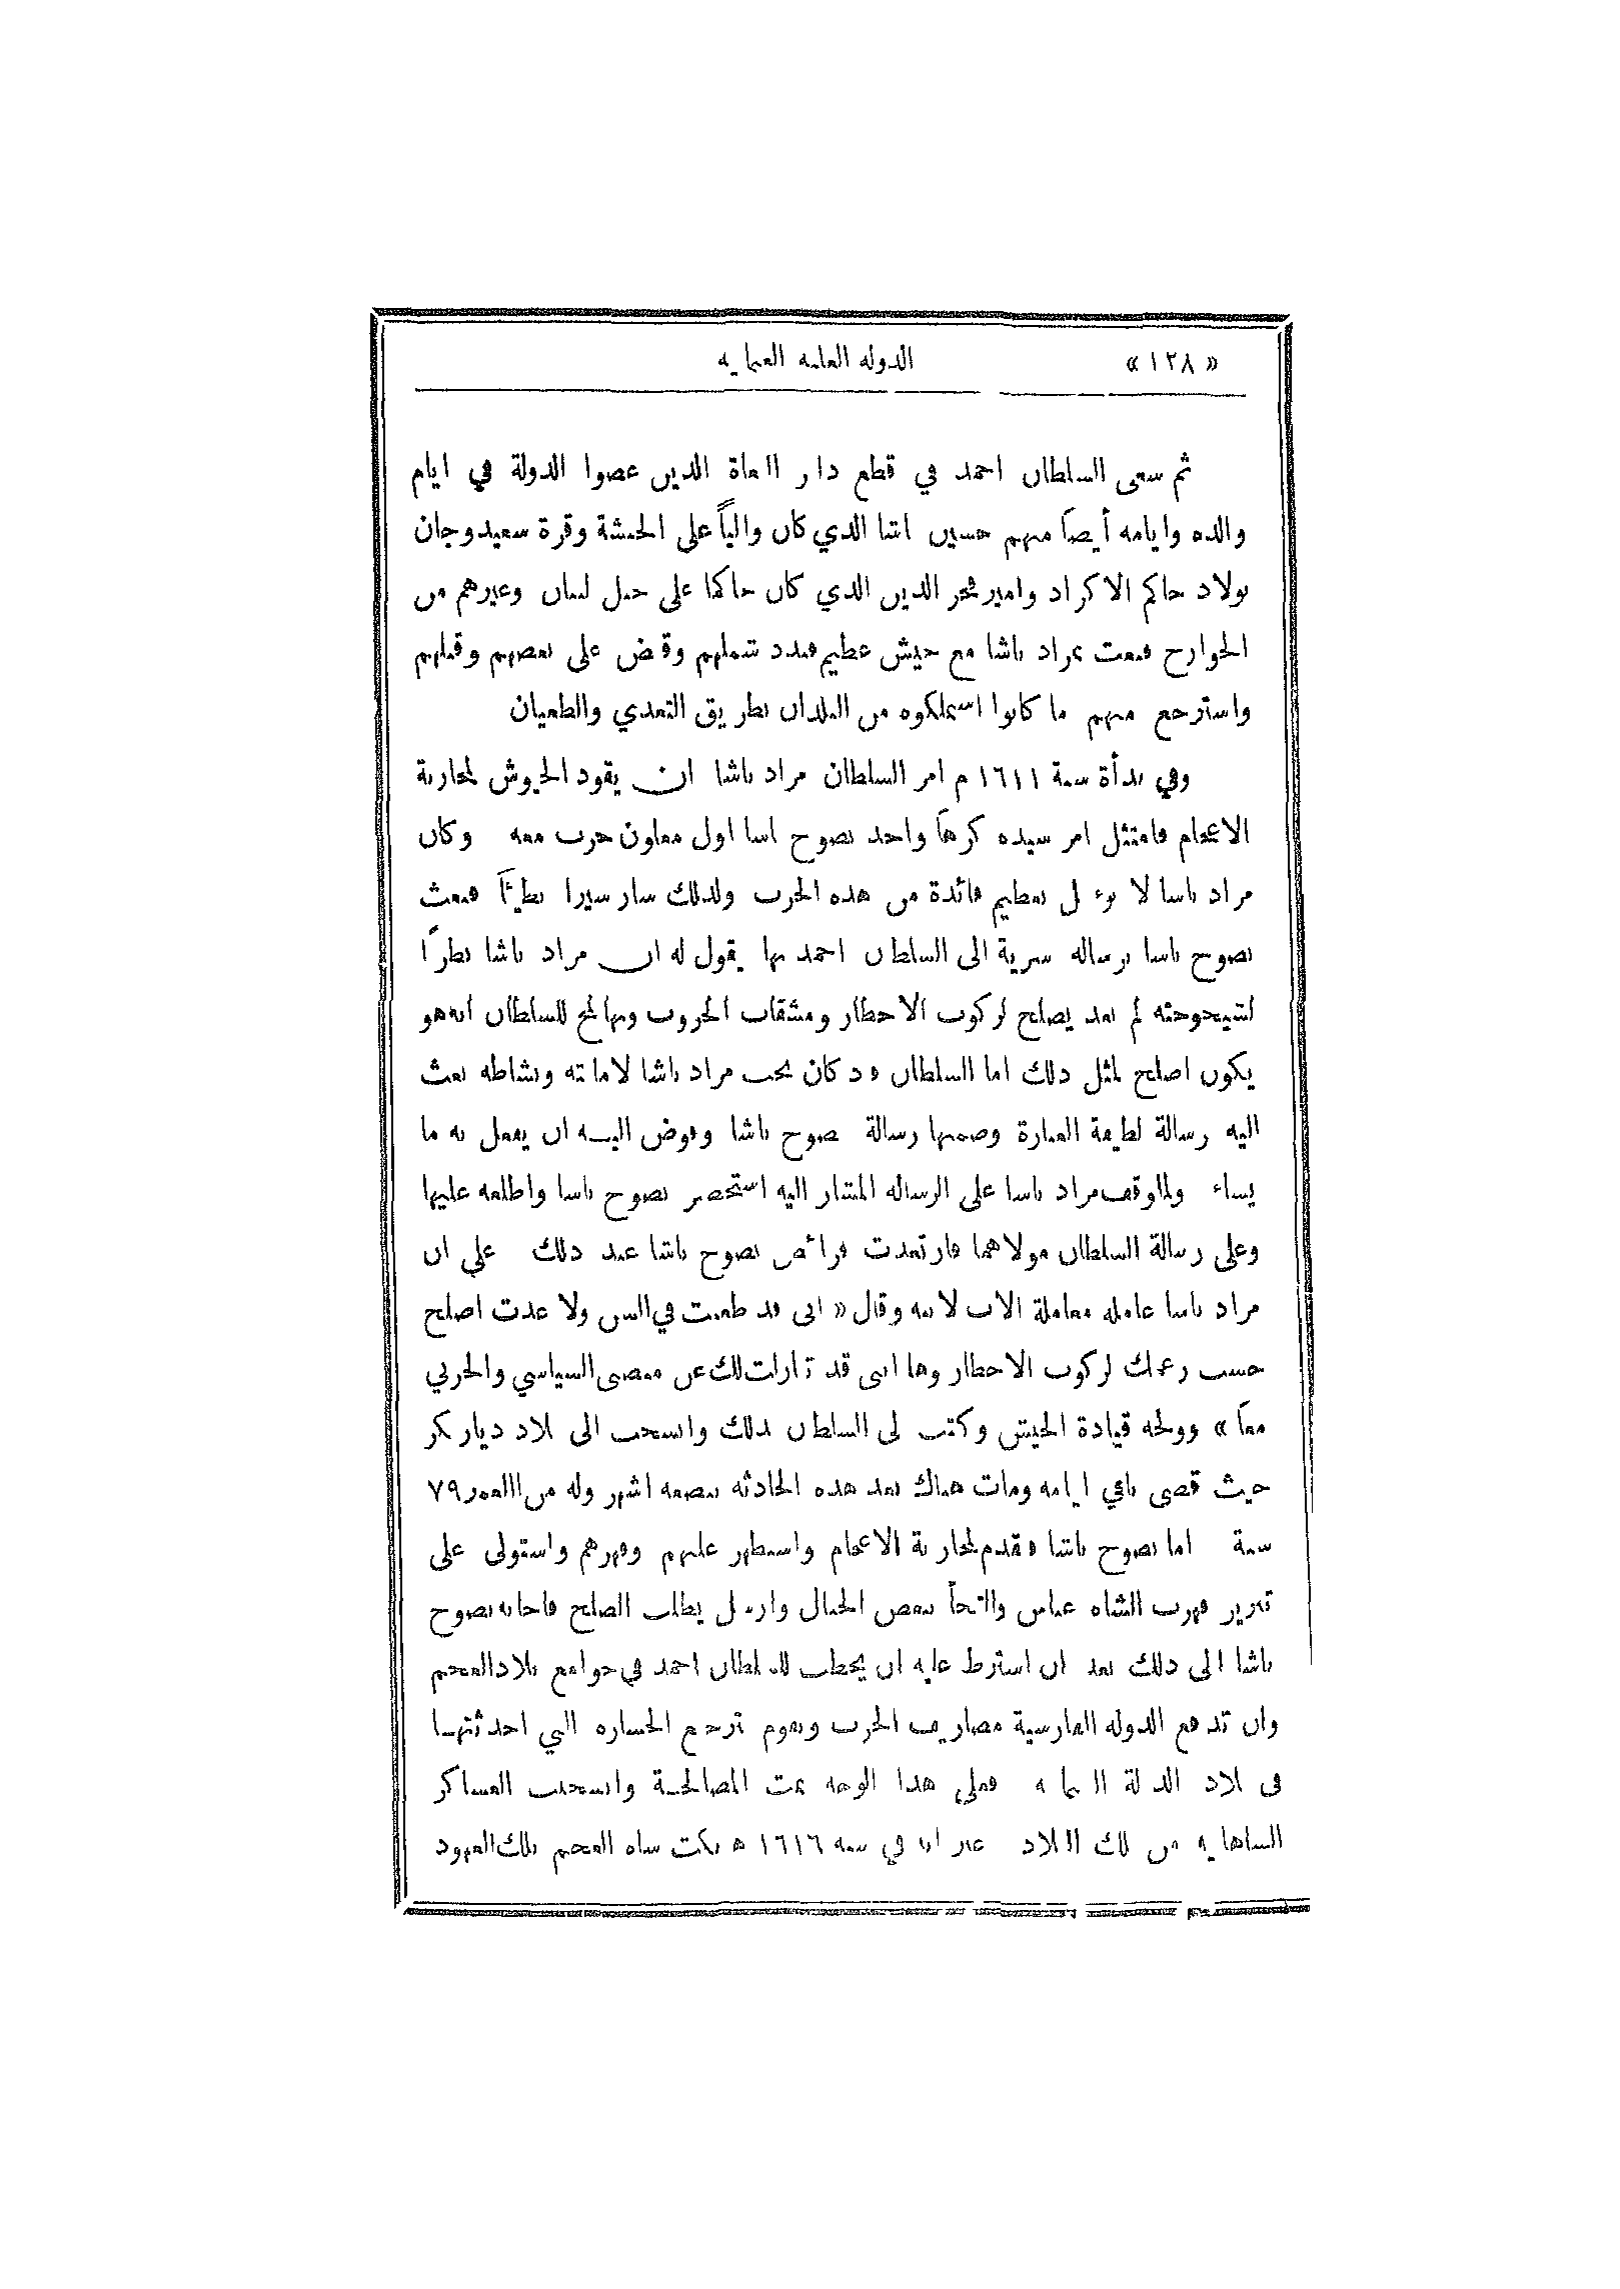 « ١٢٨ » الدولة العلية العثمانية
ثم سعى السلطان احمد في قطع دابر العصاة الذين عصوا الدولة في ايام
والده وايامه أيضاً منهم حسين باشا الذي كان والياً على الحبشة وقرة سعيد وجان
بولاد حاكم الاكراد وامير فخر الدين الذي كان حاكما على جبل لبنان وغيرهم من
الخوارج فبعث بمراد باشا مع جيش عظيم فبدد شملهم وقبض على بعضهم وقتلهم
واسترجع منهم ما كانوا استملكوه من البلدان بطريق التعدي والطغيان
وفي بدأة سنة ١٦١١ م امر السلطان مراد باشا ان يقود الجيوش لمحاربة
الاعجام فامتثل امر سيده كرهاً واخذ نصوح باشا اول معاون حرب معه وكان
مراد باشا لا يؤمل بعظيم فائدة من هذه الحرب ولذلك سار سيرا بطيئاً فبعث
نصوح باشا برسالة سرية الى السلطان احمد بها يقول له ان مراد باشا نظرًا
لشيخوخته لم يعد يصلح لركوب الاخطار ومشقات الحروب وبها لمح للسلطان انه هو
يكون اصلح لمثل ذلك اما السلطان فد كان يحب مراد باشا لامانته ونشاطه بعث
اليه رسالة لطيفة العبارة وضمنها رسالة نصوح باشا وفوض اليه ان يفعل به ما
يشاء ولما وقف مراد باشا على الرسالة المشار اليه استحضر نصوح باشا واطلعه عليها
وعلى رسالة السلطان مولاهما فارتعدت فرائص نصوح باشا عند ذلك على ان
مراد باشا عامله معاملة الاب لابنه وقال « اني قد طعنت في السن ولا عدت اصلح
حسب زعمك لركوب الاخطار وها انني قد تنازلت لك عن منصبي السياسي والحربي
معاً » وولجه قيادة الجيش وكتب الى السلطان بذلك وانسحب الى بلاد ديار بكر
حيث قضى باقي ايامه ومات هناك بعد هذه الحادثة ببضعة اشهر وله من العمر ٧٩
سنة اما نصوح باشا فتقدم لمحاربة الاعجام واستظهر عليهم وقهرهم واستولى على
تبريز فهرب الشاه عباس والتجأ ببعض الجبال وارسل يطلب الصلح فاجابه نصوح
باشا الى ذلك بعد ان اشترط عليه ان يخطب للسلطان احمد في جوامع بلاد العجم
وان تدفع الدولة الفارسية مصاريف الحرب وتقوم بترجيع الخسارة التي احدثتها
في بلاد الدولة العثمانية فعلى هذا الوجه تمت المصالحة وانسحبت العساكر
الشاهانية من تلك البلاد غير انه في سنة ١٦١٦ ه نكث شاه العجم بتلك العهود